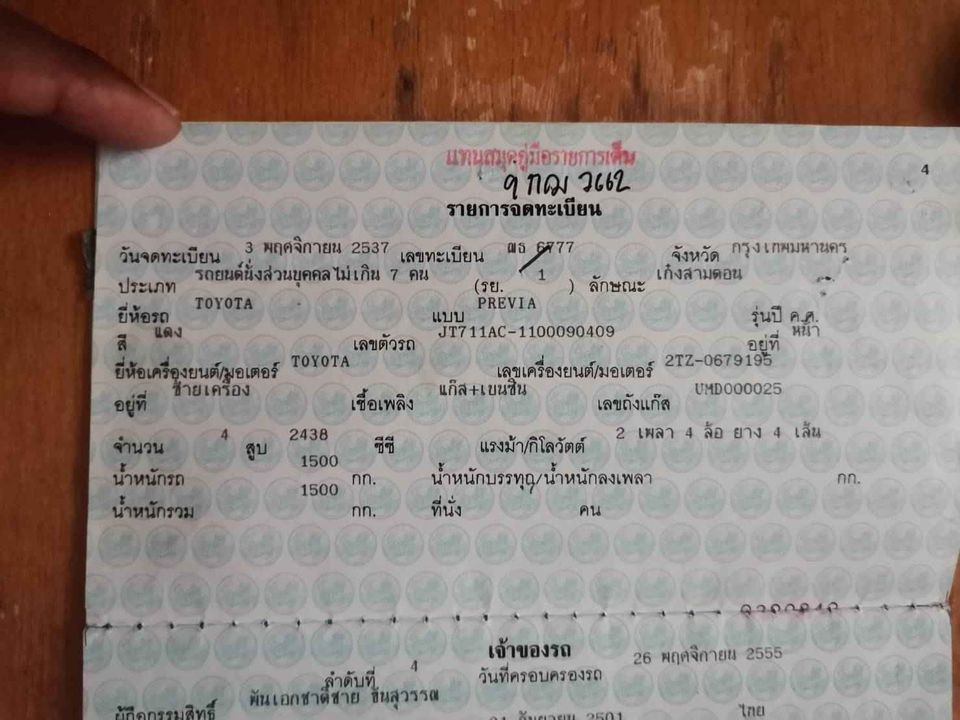 แทนสมุดคู่มือรายการเต็ม
4
รายการจดทะเบียน
วันจดทะเบียน 3 พฤศจิกายน 2537 เลขทะเบียน 6777 จังหวัด กรุงเทพมหานคร
ประเภท รถยนต์นั่งส่วนบุคคลไม่เกิน 7 คน (รย. 1 ) ลักษณะ เก๋งสามตอน
ยี่ห้อรถ TOYOTA แบบ PREVIA รุ่นปี ค.ศ.
สี แดง เลขตัวรถ JT711AC-1100090409 อยู่ที่ หน้า
ยี่ห้อเครื่องยนต์/มอเตอร์ TOYOTA เลขเครื่องยนต์/มอเตอร์ 2TZ-0679195
อยู่ที่ ซ้ายเครื่อง เชื้อเพลิง แก๊ส+เบนซิน เลขถังแก๊ส UMD000025
จำนวน 4 สูบ 2438 ซีซี แรงม้า/กิโลวัตต์ 2 เพลา 4 ล้อ ยาง 4 เส้น
น้ำหนักรถ 1500 กก. น้ำหนักบรรทุก/น้ำหนักลงเพลา กก.
น้ำหนักรวม 1500 กก. ที่นั่ง คน
เจ้าของรถ
ลำดับที่ 4 วันที่ครอบครองรถ 26 พฤศจิกายน 2555
ผู้ถือกรรมสิทธิ์ พันเอกชาติชาย ชินสุวรรณ 2501 ไทย